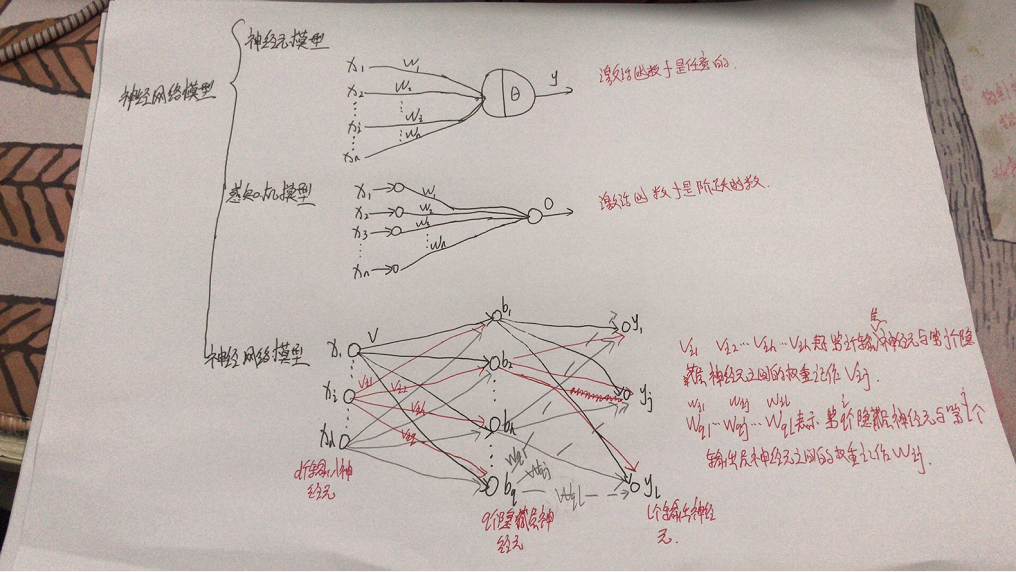 神经网络模型
神经元模型
x₁ w₁
x₂ w₂
xᵢ w₃
xₙ wₙ
θ
y
激活函数于是任意的.
感知机模型
x₁ w₁
x₂ w₂
x₃ w₃
xₙ wₙ
O
激活函数于是阶跃函数.
神经网络模型
x₁ V
xᵢ
x_d
Vᵢ₁ Vᵢ₂
Vᵢₕ
b₁
b₂
bₕ
b_q
W_q1
W_qj
W_ql
y₁
yⱼ
y_l
d个输入神
经元
q个隐藏层神
经元
l个输出神经
元.
Vᵢ₁ Vᵢ₂ … Vᵢₕ … 表示第i个输入层神经元与第j个隐
藏层神经元之间的权重记作 Vᵢⱼ.
Wᵢ₁ Wᵢⱼ Wᵢₗ
W_q1 … W_qj … W_ql 表示第i个隐藏层神经元与第j个
输出层神经元之间的权重记作 Wᵢⱼ.